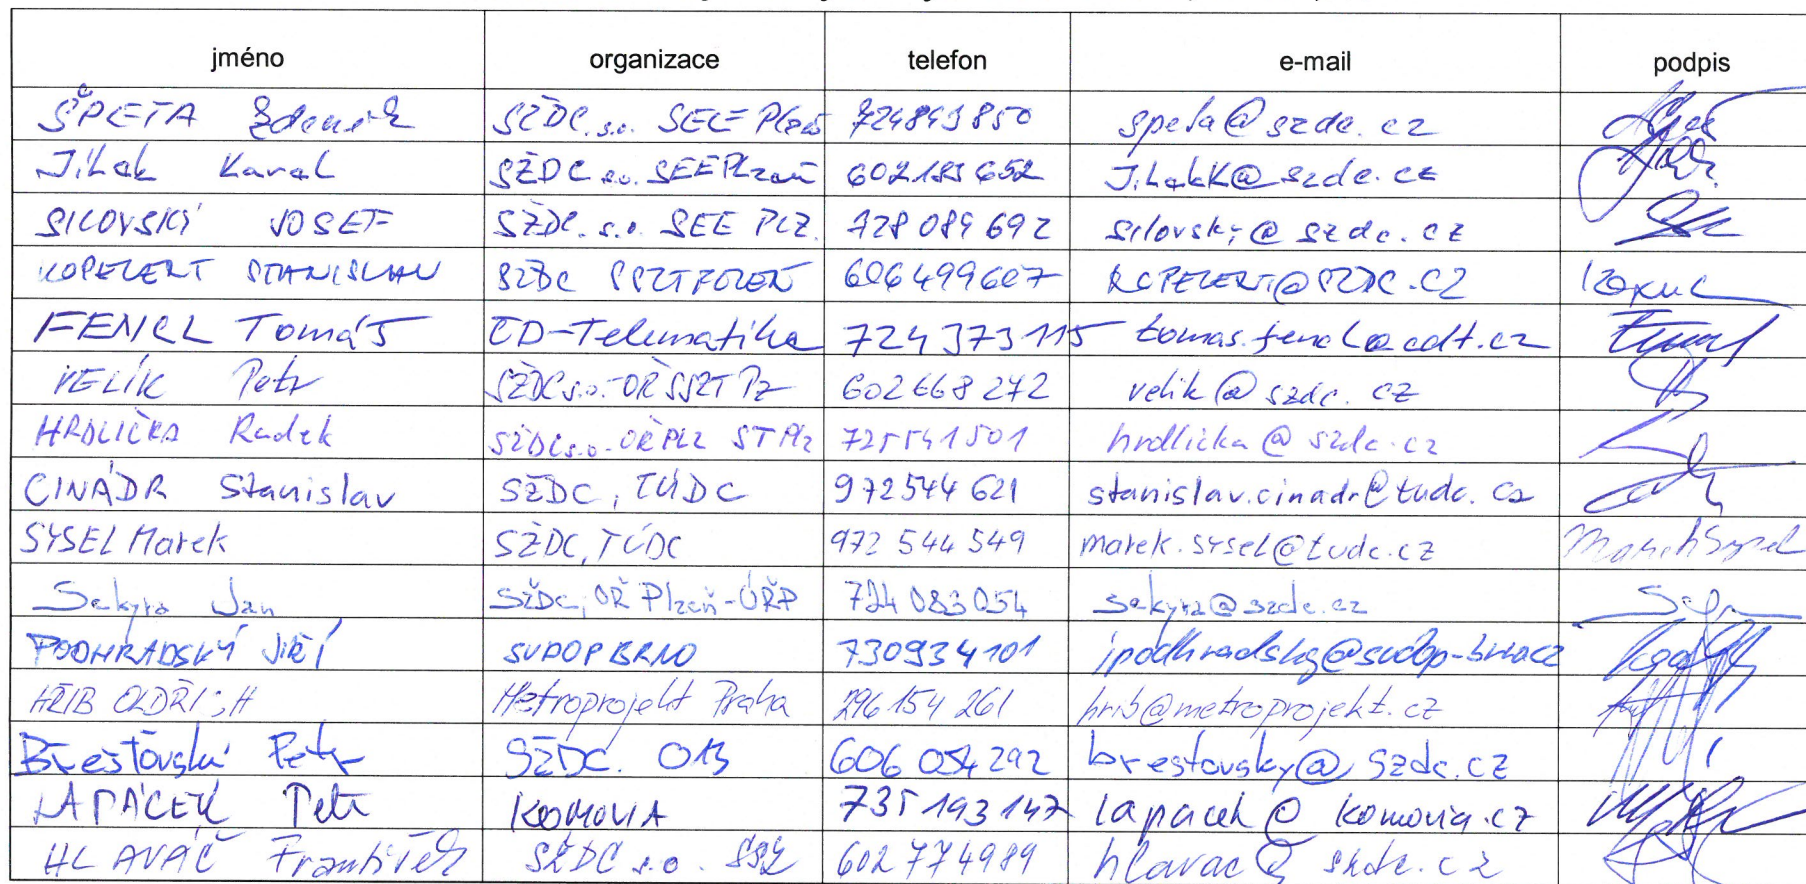 jméno organizace telefon e-mail podpis
ŠPETA Zdeněk SŽDC, s.o. SEE Plzeň 724843850 speta@szdc.cz
Jílek Karel SŽDC s.o. SEE Plzeň 602185652 JilekK@szdc.cz
SILOVSKÝ JOSEF SŽDC. s.o. SEE PLZ. 728 089 692 silovsky@szdc.cz
KOPELENT STANISLAV SŽDC SSZT PLZEŇ 606499607 KOPELENT@SZDC.CZ
FENCL Tomáš ČD-Telematika 724 373 115 tomas.fencl@cdt.cz
VELÍK Petr SŽDC s.o. - OŘ SSZT Pz 602 668 272 velik@szdc.cz
HRDLIČKA Radek SŽDC s.o. - OŘ PLZ ST Plz 725541501 hrdlicka@szdc.cz
CINÁDR Stanislav SŽDC, TÚDC 972544 621 stanislav.cinadr@tudc.cz
SYSEL Marek SŽDC, TÚDC 972 544 549 marek.sysel@tudc.cz Marek Sysel
Sekyra Jan SŽDC, OŘ Plzeň-ÚŘP 724 083 054 sekyra@szdc.cz
PODHRADSKÝ JIŘÍ SUDOP BRNO 730934101 jpodhradsky@sudop-brno.cz
HŘIB OLDŘICH Metroprojekt Praha 296 154 261 hrib@metroprojekt.cz
Břešťovský Petr SŽDC. O13 606 054 292 brestovsky@szdc.cz
LAPÁČEK Petr KOMOVIA 735 193 147 lapacek@komovia.cz
HLAVÁČ František SŽDC s.o. SSZ 602 774989 hlavac@szdc.cz